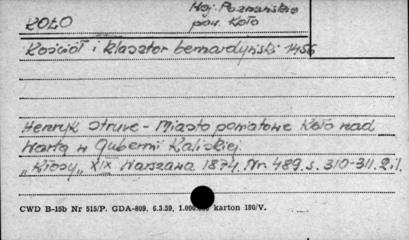 Woj. Poznańskie
KOŁO pow. Koło
Kościół i klasztor bernardyński 1456
Henryk Struve - Miasto powiatowe Koło nad
Wartą w Gubernii Kaliskiej.
"Kłosy" XIX Warszawa 1874. Nr. 489. s. 310-311. 2 il.
CWD B-15b Nr 515/P. GDA-809. 6.3.59. karton 180/V.